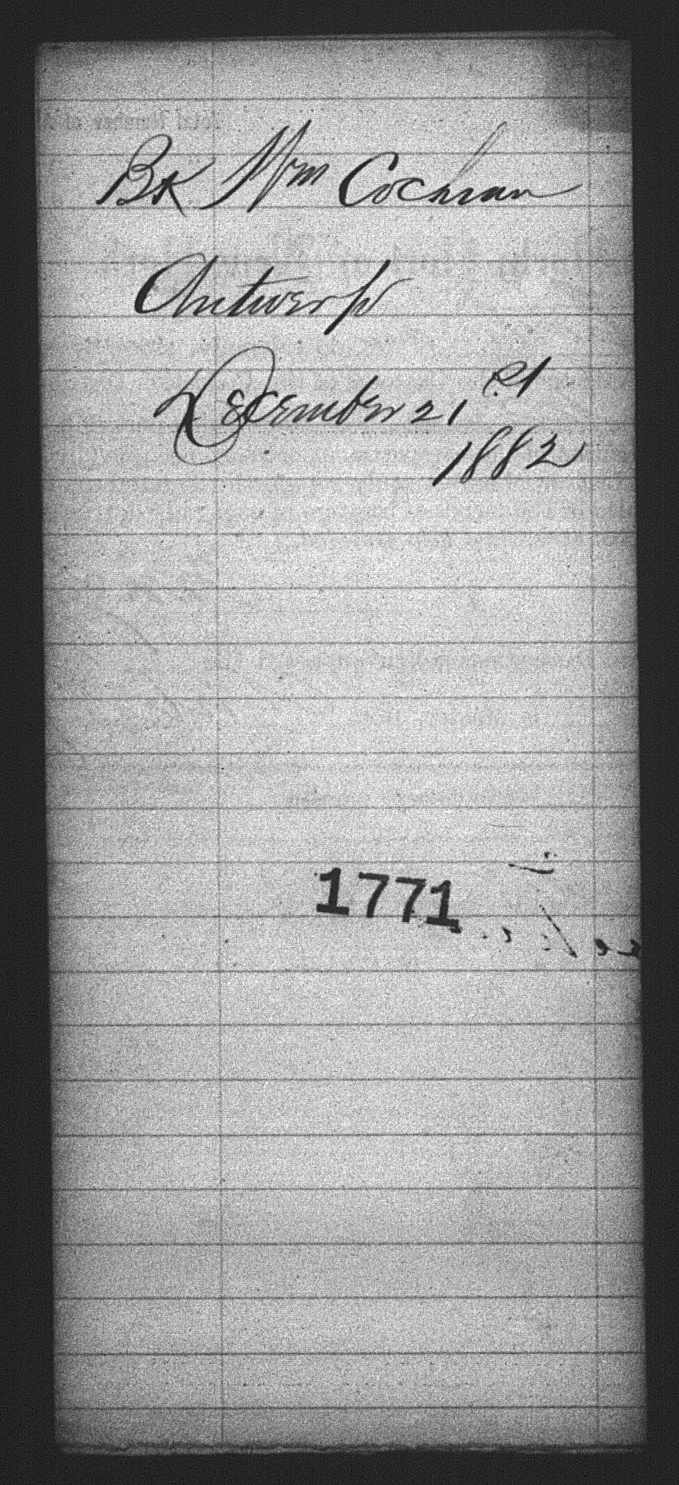 Bk Wm Cochran
Antwerp
December 21st
1882
1771